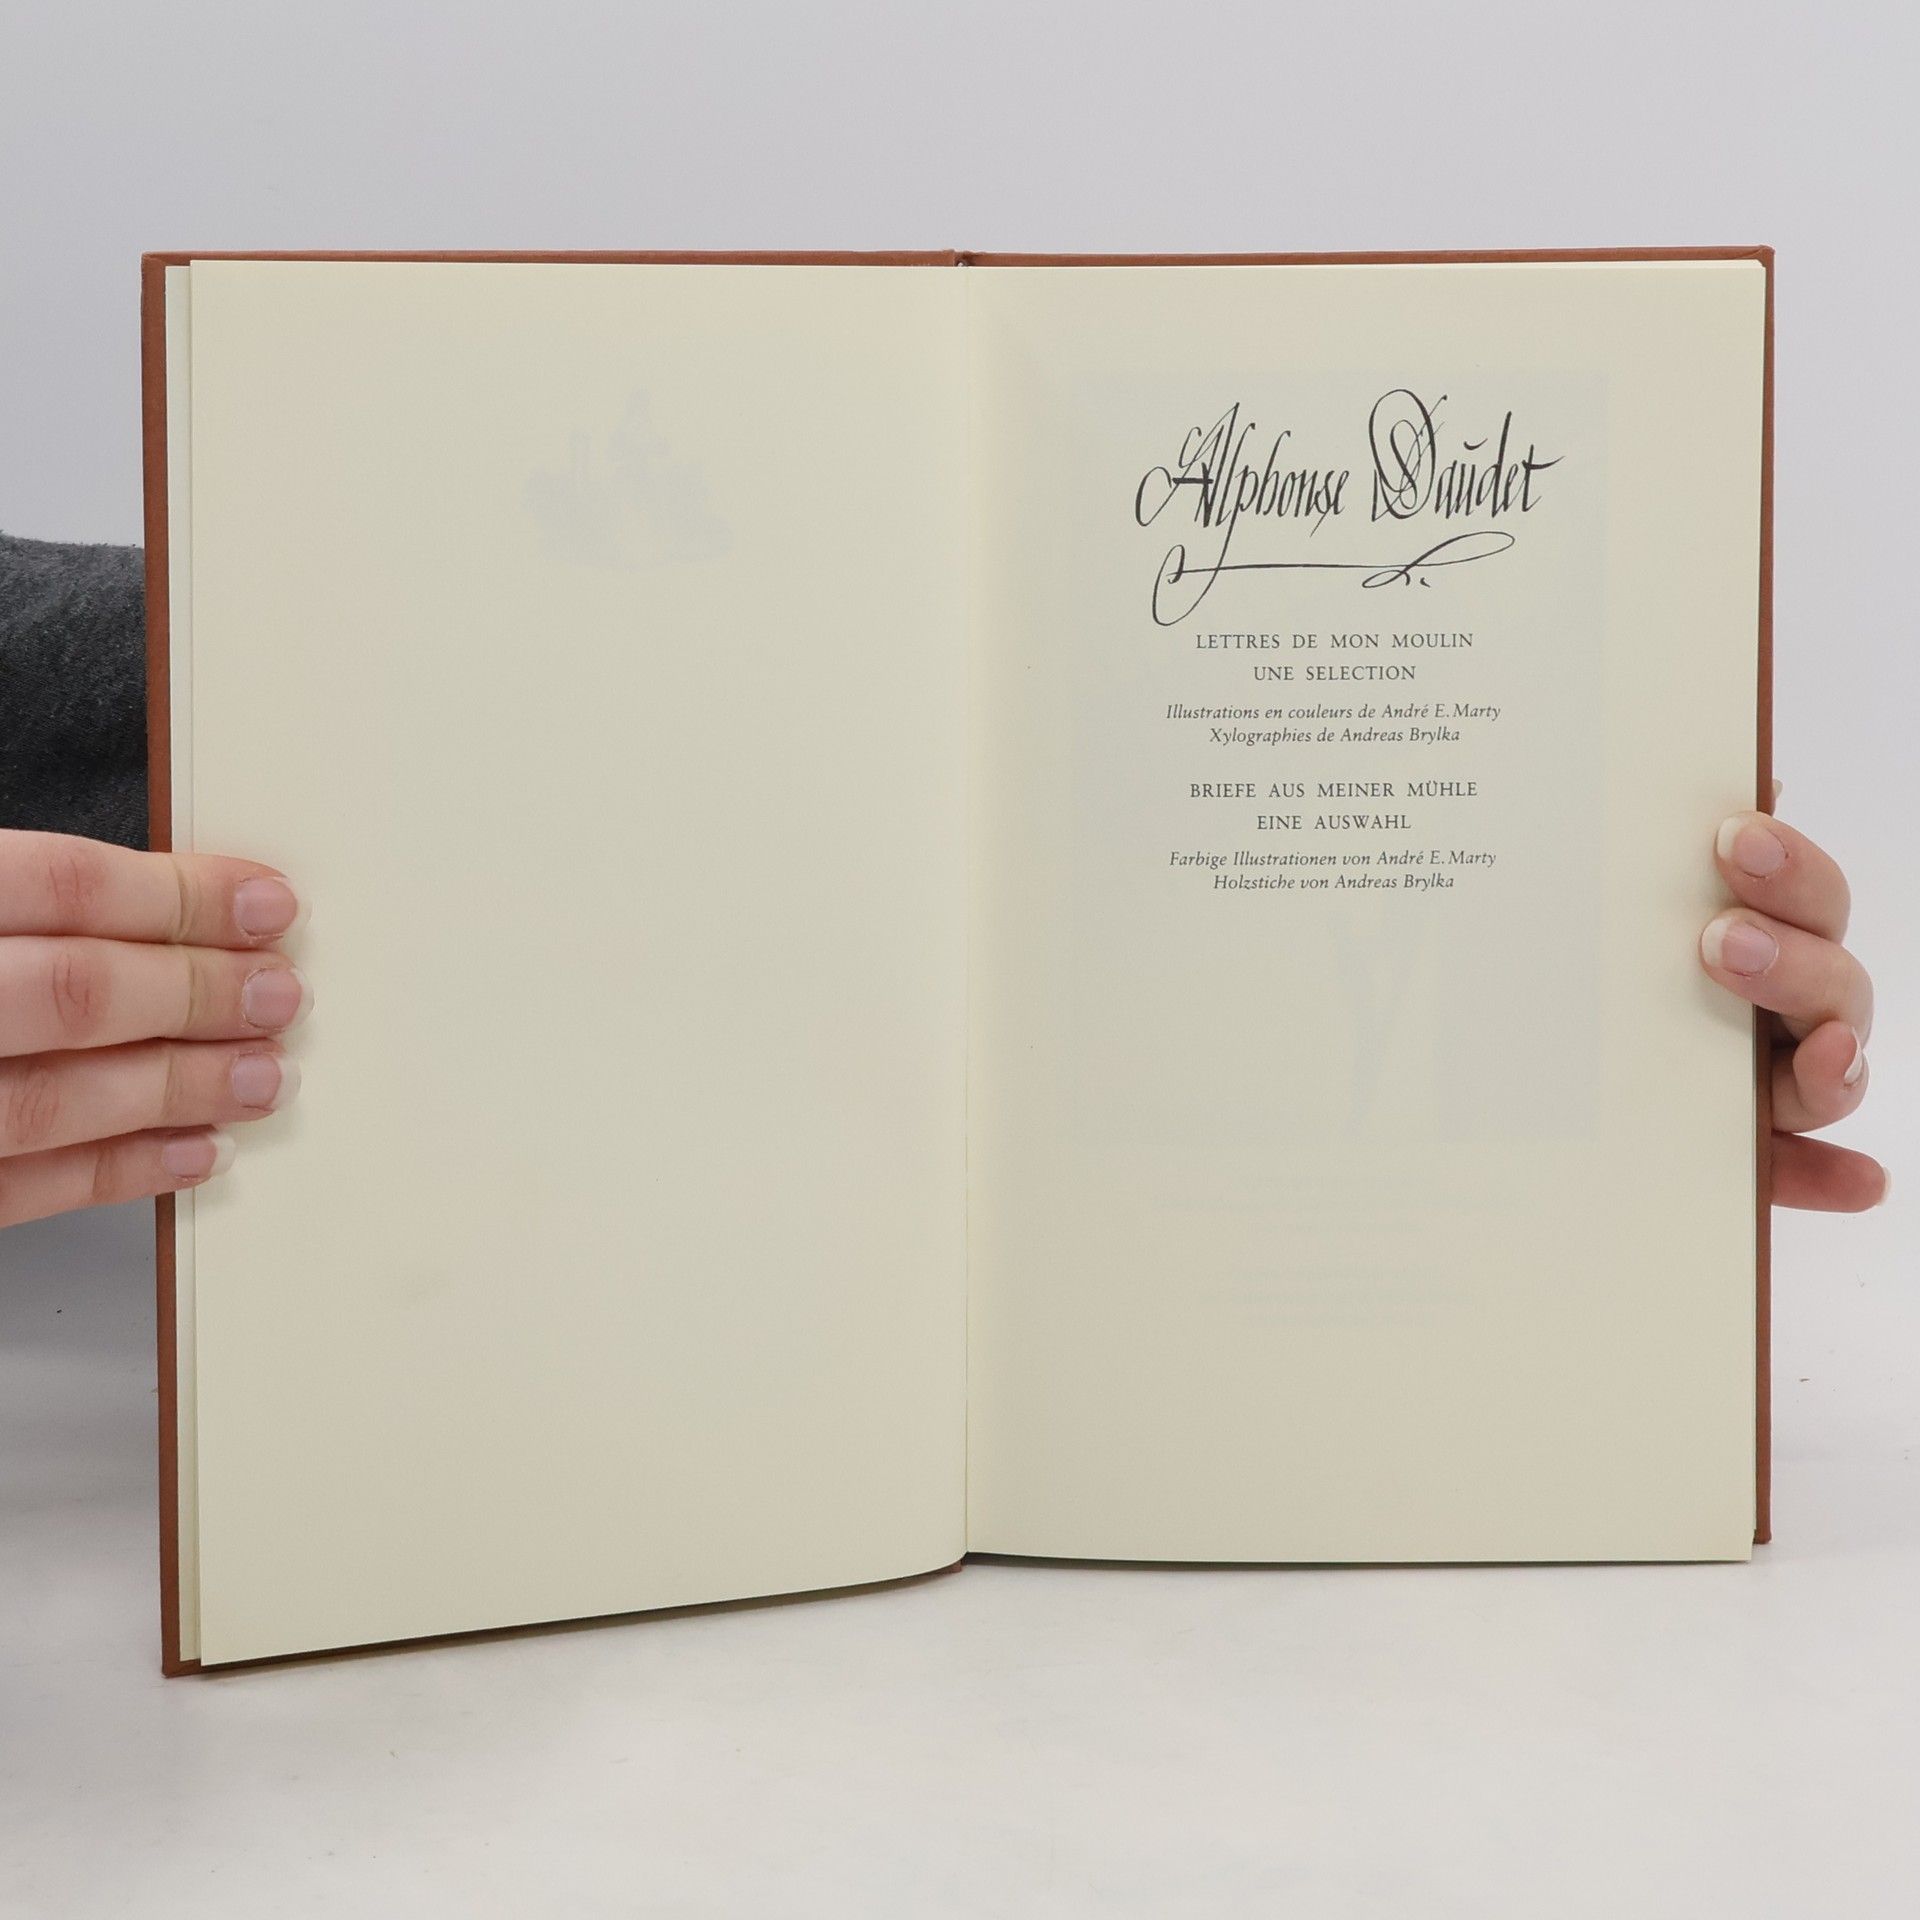 Alphonse Daudet
LETTRES DE MON MOULIN
UNE SELECTION
Illustrations en couleurs de André E. Marty
Xylographies de Andreas Brylka
BRIEFE AUS MEINER MÜHLE
EINE AUSWAHL
Farbige Illustrationen von André E. Marty
Holzstiche von Andreas Brylka